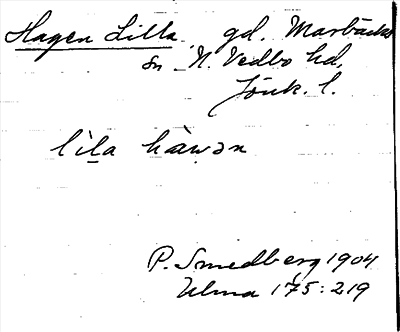 Hagen Lilla gd. Marbäcks
sn N. Vedbo hd.
Jönk. l.
lìl̠a hàw̠ən
P. Smedberg 1904
Ulma 175:219